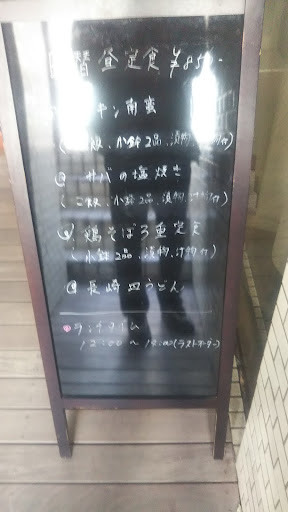 替 昼定食 ¥850-
チキン南蛮
(ご飯、小鉢2品、漬物、汁物付)
サバの塩焼き
(ご飯、小鉢2品、漬物、汁物付)
鶏そぼろ重定食
(小鉢2品、漬物、汁物付)
長崎皿うどん
ランチタイム
12:00~14:00(ラストオーダー)